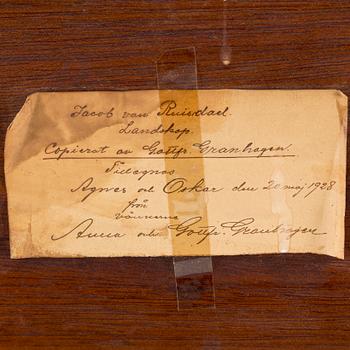 Jacob van Ruisdael.
Landskap.
Copierat av Gottfr. Granhagen.
Tillegnas
Agnes och Oskar den 20 maj 1928
från
vännerna
Anna och Gottfr. Granhagen